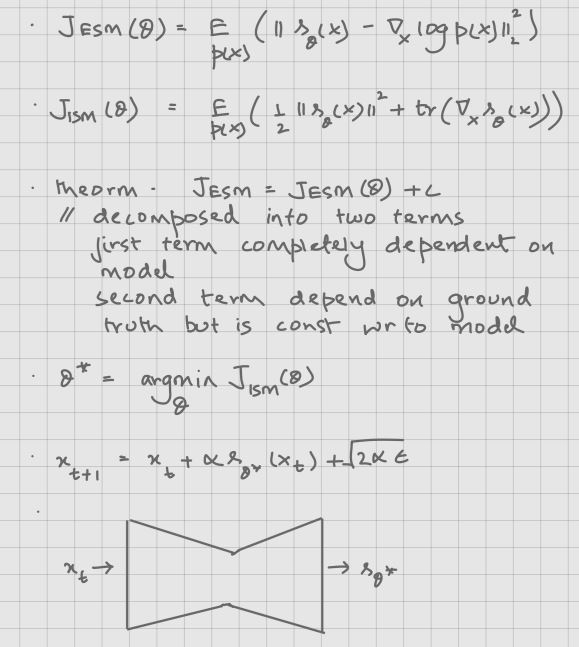 · J_ESM(θ) = E_p(x) (‖ s_θ(x) − ∇_x log p(x)‖₂²)
· J_ISM(θ) = E_p(x) (1/2 ‖s_θ(x)‖² + tr(∇_x s_θ(x)))
· theorm · J_ESM = J_ESM(θ) + C
// decomposed into two terms
first term completely dependent on
model
second term depend on ground
truth but is const wr to model
· θ* = argmin_θ J_ISM(θ)
· x_t+1 = x_t + α s_θ*(x_t) + √2α ϵ
·
x_t → → s_θ*